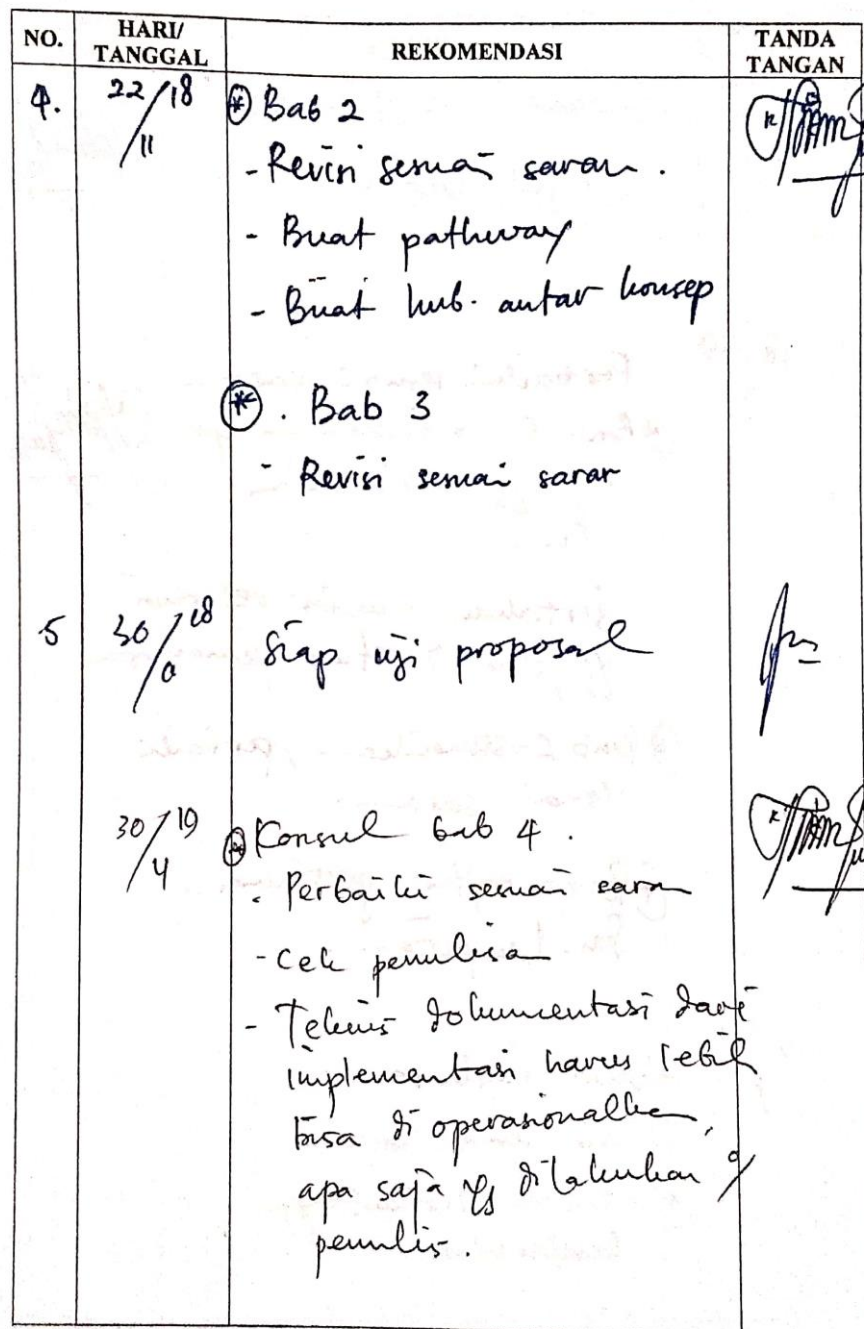 NO. HARI/ TANGGAL REKOMENDASI TANDA TANGAN
4. 22/11 18 * Bab 2
- Revisi sesuai saran.
- Buat pathway
- Buat hub. antar konsep
* . Bab 3
- Revisi sesuai saran
5 30/ 18 Siap uji proposal
30/4 19 * Konsul bab 4.
- Perbaiki sesuai saran
- Cek penulisa
- Teknis dokumentasi dari
implementasi harus lebih
bisa di operasionalka,
apa saja yg dilakukan
penulis.